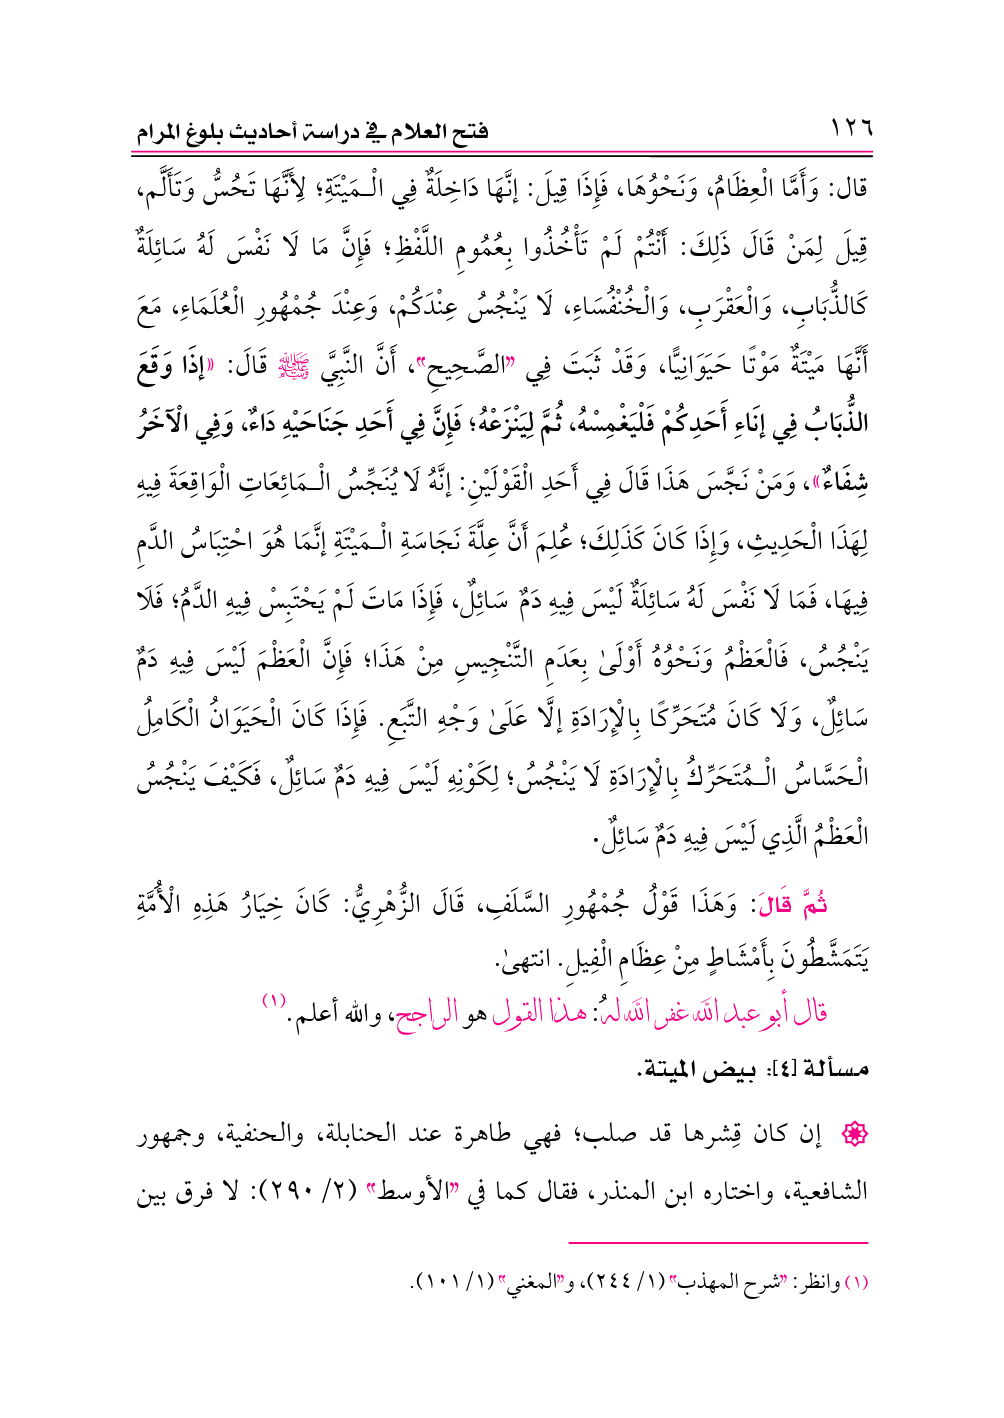 ١٢٦ فتح العلام في دراسة أحاديث بلوغ المرام
قال: وَأَمَّا الْعِظَامُ، وَنَحْوُهَا، فَإِذَا قِيلَ: إنَّهَا دَاخِلَةٌ فِي الْـمَيْتَةِ؛ لِأَنَّهَا تَحُسُّ وَتَأَلَّم،
قِيلَ لِمَنْ قَالَ ذَلِكَ: أَنْتُمْ لَمْ تَأْخُذُوا بِعُمُومِ اللَّفْظِ؛ فَإِنَّ مَا لَا نَفْسَ لَهُ سَائِلَةٌ
كَالذُّبَابِ، وَالْعَقْرَبِ، وَالْخُنْفُسَاءِ، لَا يَنْجُسُ عِنْدَكُمْ، وَعِنْدَ جُمْهُورِ الْعُلَمَاءِ، مَعَ
أَنَّهَا مَيْتَةٌ مَوْتًا حَيَوَانِيًّا، وَقَدْ ثَبَتَ فِي "الصَّحِيحِ"، أَنَّ النَّبِيَّ ﷺ قَالَ: «إذَا وَقَعَ
الذُّبَابُ فِي إنَاءِ أَحَدِكُمْ فَلْيَغْمِسْهُ، ثُمَّ لِيَنْزَعْهُ؛ فَإِنَّ فِي أَحَدِ جَنَاحَيْهِ دَاءٌ، وَفِي الْآخَرُ
شِفَاءٌ»، وَمَنْ نَجَّسَ هَذَا قَالَ فِي أَحَدِ الْقَوْلَيْنِ: إنَّهُ لَا يُنَجِّسُ الْـمَائِعَاتِ الْوَاقِعَةَ فِيهِ
لِهَذَا الْحَدِيثِ، وَإِذَا كَانَ كَذَلِكَ؛ عُلِمَ أَنَّ عِلَّةَ نَجَاسَةِ الْـمَيْتَةِ إنَّمَا هُوَ احْتِبَاسُ الدَّمِ
فِيهَا، فَمَا لَا نَفْسَ لَهُ سَائِلَةٌ لَيْسَ فِيهِ دَمٌ سَائِلٌ، فَإِذَا مَاتَ لَمْ يَحْتَبِسْ فِيهِ الدَّمُ؛ فَلَا
يَنْجُسُ، فَالْعَظْمُ وَنَحْوُهُ أَوْلَىٰ بِعَدَمِ التَّنْجِيسِ مِنْ هَذَا؛ فَإِنَّ الْعَظْمَ لَيْسَ فِيهِ دَمٌ
سَائِلٌ، وَلَا كَانَ مُتَحَرِّكًا بِالْإِرَادَةِ إلَّا عَلَىٰ وَجْهِ التَّبَعِ. فَإِذَا كَانَ الْحَيَوَانُ الْكَامِلُ
الْحَسَّاسُ الْـمُتَحَرِّكُ بِالْإِرَادَةِ لَا يَنْجُسُ؛ لِكَوْنِهِ لَيْسَ فِيهِ دَمٌ سَائِلٌ، فَكَيْفَ يَنْجُسُ
الْعَظْمُ الَّذِي لَيْسَ فِيهِ دَمٌ سَائِلٌ.
ثُمَّ قَالَ: وَهَذَا قَوْلُ جُمْهُورِ السَّلَفِ، قَالَ الزُّهْرِيُّ: كَانَ خِيَارُ هَذِهِ الْأُمَّةِ
يَتَمَشَّطُونَ بِأَمْشَاطٍ مِنْ عِظَامِ الْفِيلِ. انتهىٰ.
قال أبو عبد الله غفر الله لهُ: هذا القول هو الراجح، والله أعلم.(١)
مسألة [٤]: بيض الميتة.
إن كان قِشرها قد صلب؛ فهي طاهرة عند الحنابلة، والحنفية، وجمهور
الشافعية، واختاره ابن المنذر، فقال كما في "الأوسط" (٢/ ٢٩٠): لا فرق بين
(١) وانظر: "شرح المهذب" (١/ ٢٤٤)، و"المغني" (١/ ١٠١).